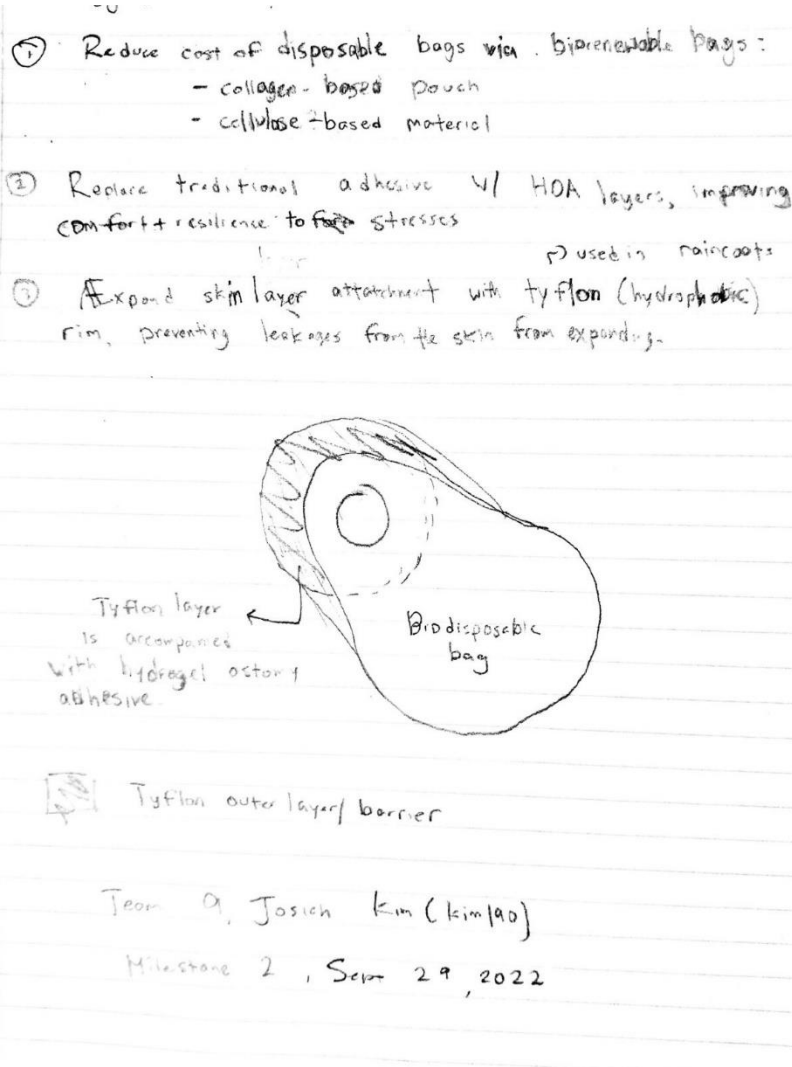 ① Reduce cost of disposable bags via biorenewable bags:
- collagen-based pouch
- cellulose-based material
② Replace traditional adhesive w/ HOA layers, improving
comfort + resilience to stresses
used in raincoats
③ Expand skin layer attatchment with tyflon (hydrophobic)
rim, preventing leakages from the skin from expanding.
Tyflon layer
is accompanied
with hydrogel ostomy
adhesive.
Biodisposable
bag
Tyflon outer layer/ barrier
Team 9, Josiah Kim (kim190)
Milestone 2, Sept 29, 2022